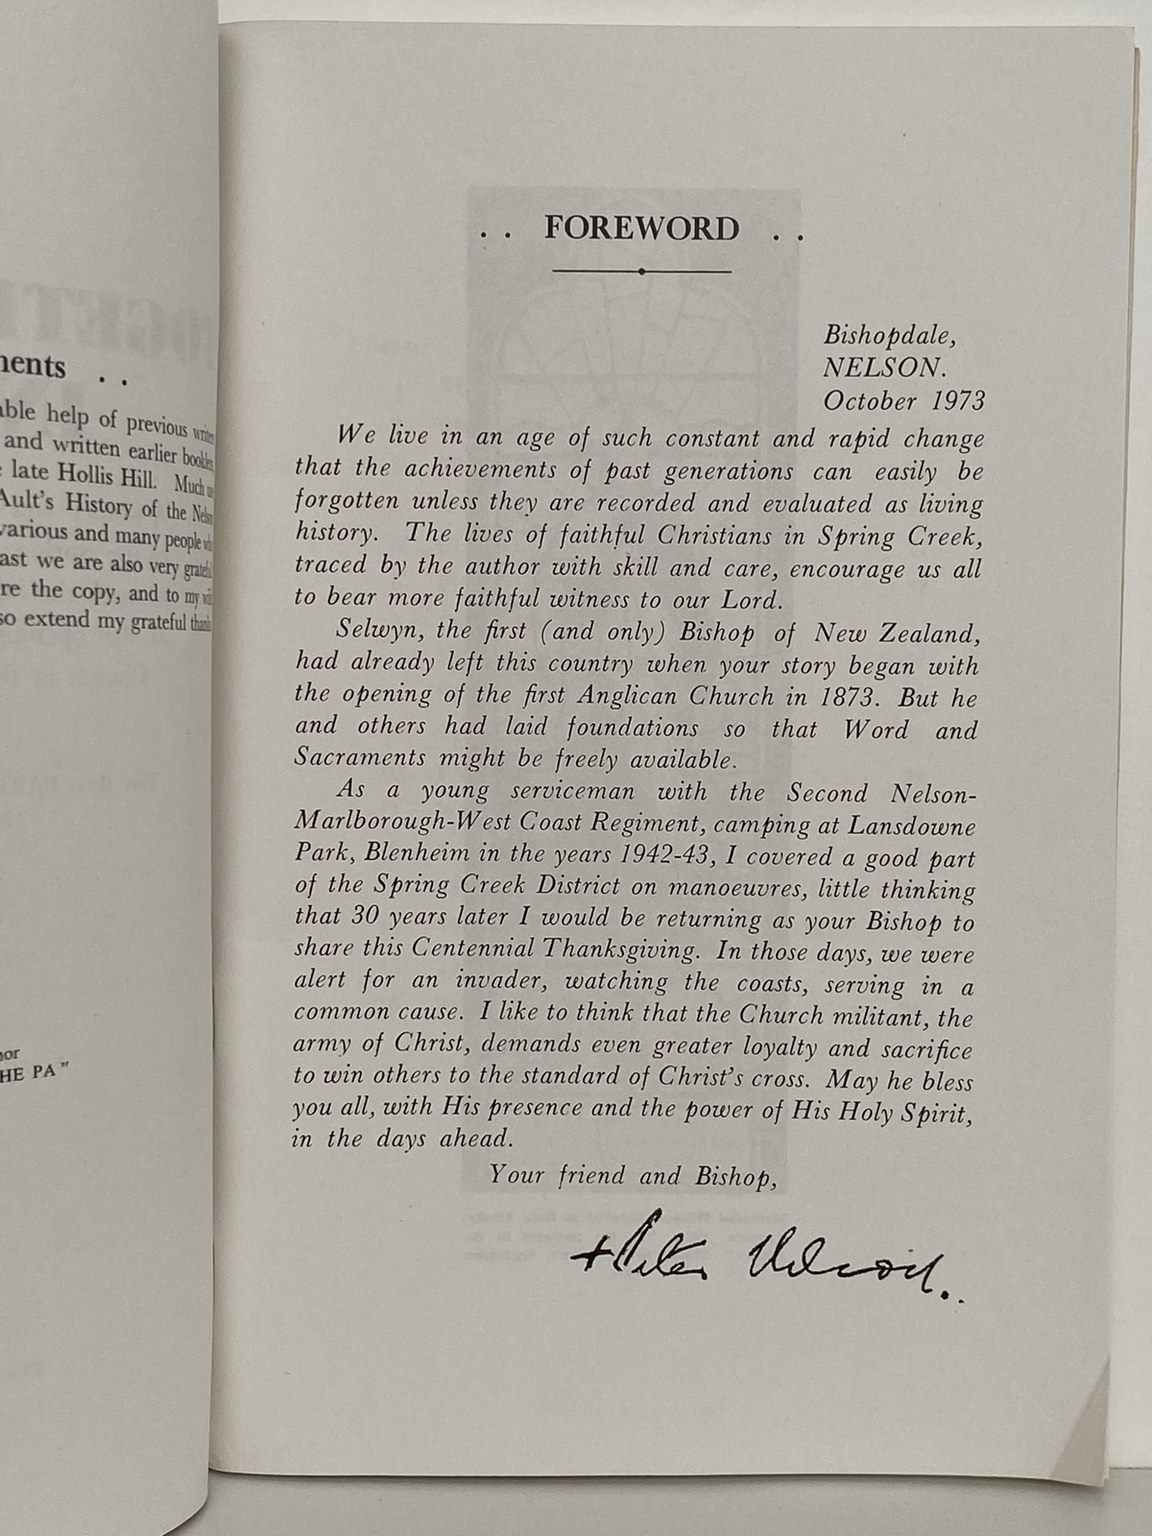 ments . .
able help of previous
and written earlier
late Hollis Hill. Much
Ault's History of the
various and many people
ast we are also very
re the copy, and to my
so extend my grateful
HE PA"
. . FOREWORD . .
Bishopdale,
NELSON.
October 1973
We live in an age of such constant and rapid change
that the achievements of past generations can easily be
forgotten unless they are recorded and evaluated as living
history. The lives of faithful Christians in Spring Creek,
traced by the author with skill and care, encourage us all
to bear more faithful witness to our Lord.
Selwyn, the first (and only) Bishop of New Zealand,
had already left this country when your story began with
the opening of the first Anglican Church in 1873. But he
and others had laid foundations so that Word and
Sacraments might be freely available.
As a young serviceman with the Second Nelson-
Marlborough-West Coast Regiment, camping at Lansdowne
Park, Blenheim in the years 1942-43, I covered a good part
of the Spring Creek District on manoeuvres, little thinking
that 30 years later I would be returning as your Bishop to
share this Centennial Thanksgiving. In those days, we were
alert for an invader, watching the coasts, serving in a
common cause. I like to think that the Church militant, the
army of Christ, demands even greater loyalty and sacrifice
to win others to the standard of Christ's cross. May he bless
you all, with His presence and the power of His Holy Spirit,
in the days ahead.
Your friend and Bishop,
+Peter Nelson.